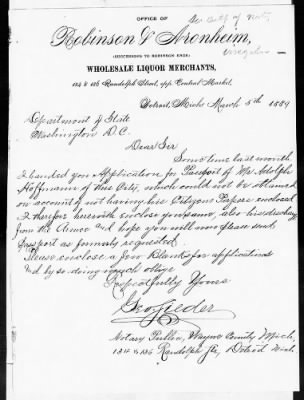 OFFICE OF
Robinson & Aronheim,
(SUCCESSORS TO ROBINSON BROS)
WHOLESALE LIQUOR MERCHANTS,
134 & 136 Randolph Street, opp. Central Market,
Detroit, Mich. March 5th 1889
Department of State
Washington D.C.
Dear Sir
Sometime last month
I handed you Application for Passport of Mr Adolph
Hoffmann of this City, which could not be obtained
on account of not having his Citizens Papers enclosed
I therefor herewith enclose you same, also his discharge
from the Armee and hope you will now please send
Passport as formerly requested.
Please enclose a few Blanks for applications
&d by so doing much oblige
Respectfully Yours
Geo Lieder
Notary Public, Wayne County Mich.
134 & 136 Randolph St, Detroit Mich.